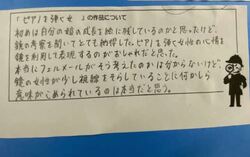 「ピアノを弾く女」の作品について
初めは自分の娘の成長を絵に残しているのかと思ったけど、
鏡の考察を聞いてとても納得した。ピアノを弾く女性の心情を
鏡を利用して表現するのがおしゃれだと思った。
本当にフェルメールがそう考えたのかは分からないけど、
鏡の女性が少し視線をそらしていることに何かしら
意味がこめられているのは本当だと思う。